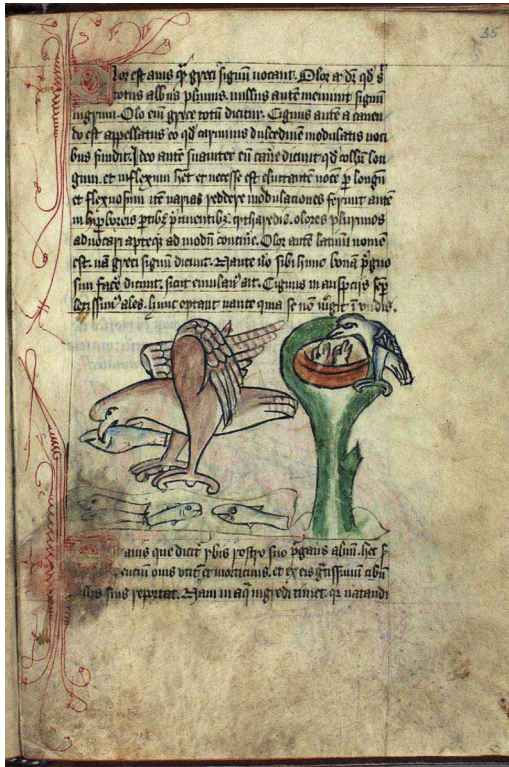 35
Olor est avis qͣ greci signū uocant. Olor a dr qd s̄
totus albus plumis. nullus autē meminit signū
nigrum. Olo eni grece totū dicitur. Cignus autē a canen
do est appellatus eo qd carminis dulcedinē modulatis uoci
bus fundit. Ideo autē suauiter eū canē dicunt qd collū lon
gum. et inflexum het et necesse est eluctantē uocē p longū
et flexuosum itē varias reddere modulationes ferunt autē
in hiꝑboreis ꝑtibꝫ citharedis. olores plurimos
aduolari apteqꝫ ad modū Olor autē latinū nomē
est. nā greci signū dicunt. Naute sibi hunc bonā
sim facē dicunt. sicut emulanꝰ ait. Cignus in auspicijs semꝑ
letissimꝰ ales. hunc optant naute quia se nō mgit ī undis.
auis que dicit̄ ybis rostro suo purgans aluū. het
quis utit̄ et morticinis. et ex eis gͣtissimū cibū
suis reportat. Nam in aqͣ ingredi timet. qr natandi